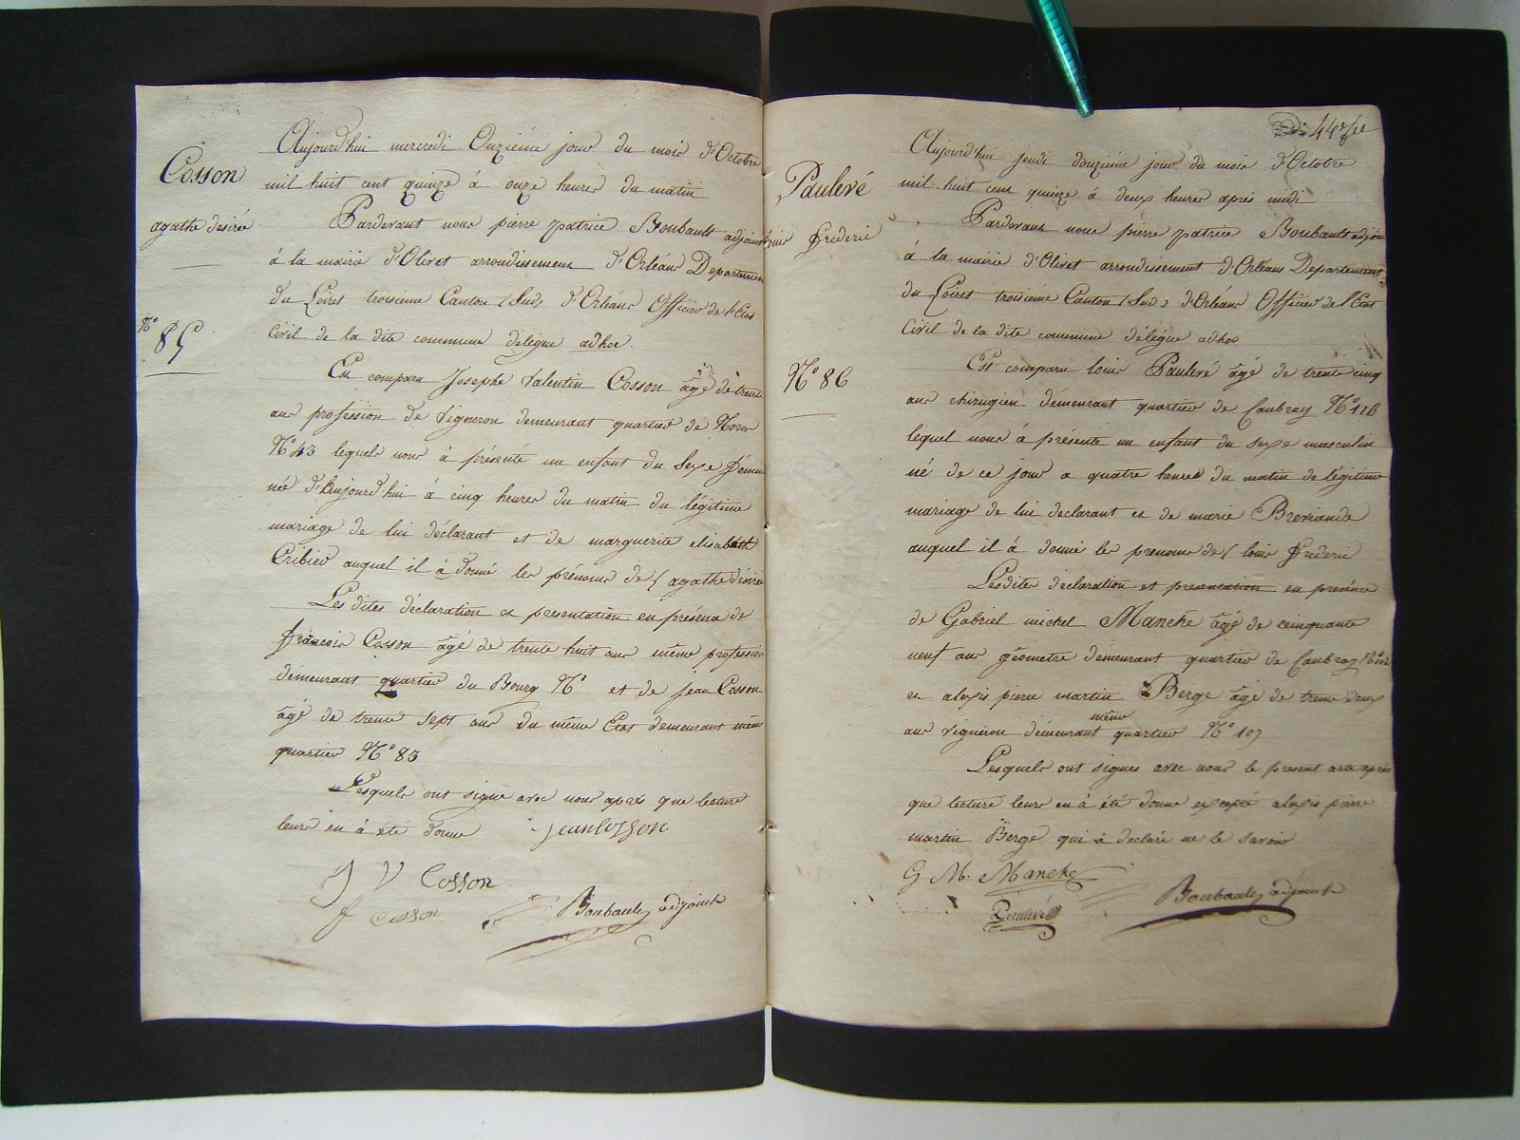 Cosson
agathe desirée
N° 85
Aujourd'hui mercredi Onzieme jour du mois d'Octobre
mil huit cent quinze á onze heures du matin
Pardevant nous pierre patrice Boubault adjoint
á la mairie d'Olivet arrondissement d'Orléans Departement
du Loiret troisieme Canton (Sud) d'Orléans Officier de l'Etat
Civil de la dite commune délégué adhoc.
Est comparu Josephe Valentin Cosson âgé de trente
ans profession de Vigneron demeurant quartier de
N° 43 lequel nous à présenté un enfant du Sexe femin
née d'Aujourd'hui á cinq heures du matin du légitime
mariage de lui déclarant et de marguerite elisabeth
Cribier auquel il á donné les prénoms de / agathe desirée
Les dites déclaration et presentation en présence de
françois Cosson âgé de trente huit ans même profession
demeurant quartier du Bourg N° et de jean Cosson
âgé de trente sept ans du même Etat demeurant même
quartier N° 85
Lesquels ont signé avec nous après que lecture
leur en á été donné jean Cosson
J V Cosson
f Cosson
Boubault adjoint
44e
Paulevé
louis frederic
N° 86
Aujourd'hui jeudi douzieme jour du mois d'Octobre
mil huit cent quinze á deux heures après midi
Pardevant nous pierre patrice Boubault adjoin
á la mairie d'Olivet arrondissement d'Orléans Departement
du Loiret troisieme Canton (Sud) d'Orléans Officier de l'Etat
Civil de la dite commune délégué adhoc
Est comparu louis Paulevé âgé de trente cinq
ans chirugien demeurant quartier de Caubray N° 126
lequel nous á présenté un enfant du sexe masculin
né de ce jour a quatre heures du matin de légitime
mariage de lui declarant et de marie Breviande
auquel il á donné les prenoms de / louis frederic
Lesdites déclaration et presentation en presence
de Gabriel michel Manche âgé de cemquante
neuf ans géometre demeurant quartier de Caubray
et alexis pierre martin Berge âgé de trente deux
ans vigneron demeurant même quartier N° 107
Lesquels ont signés avec nous le present acte après
que lecture leur en á été donné excepté alexis pierre
martin Berge qui á declaré ne le savoir
G. M. Manche
Paulevé
Boubault adjoint